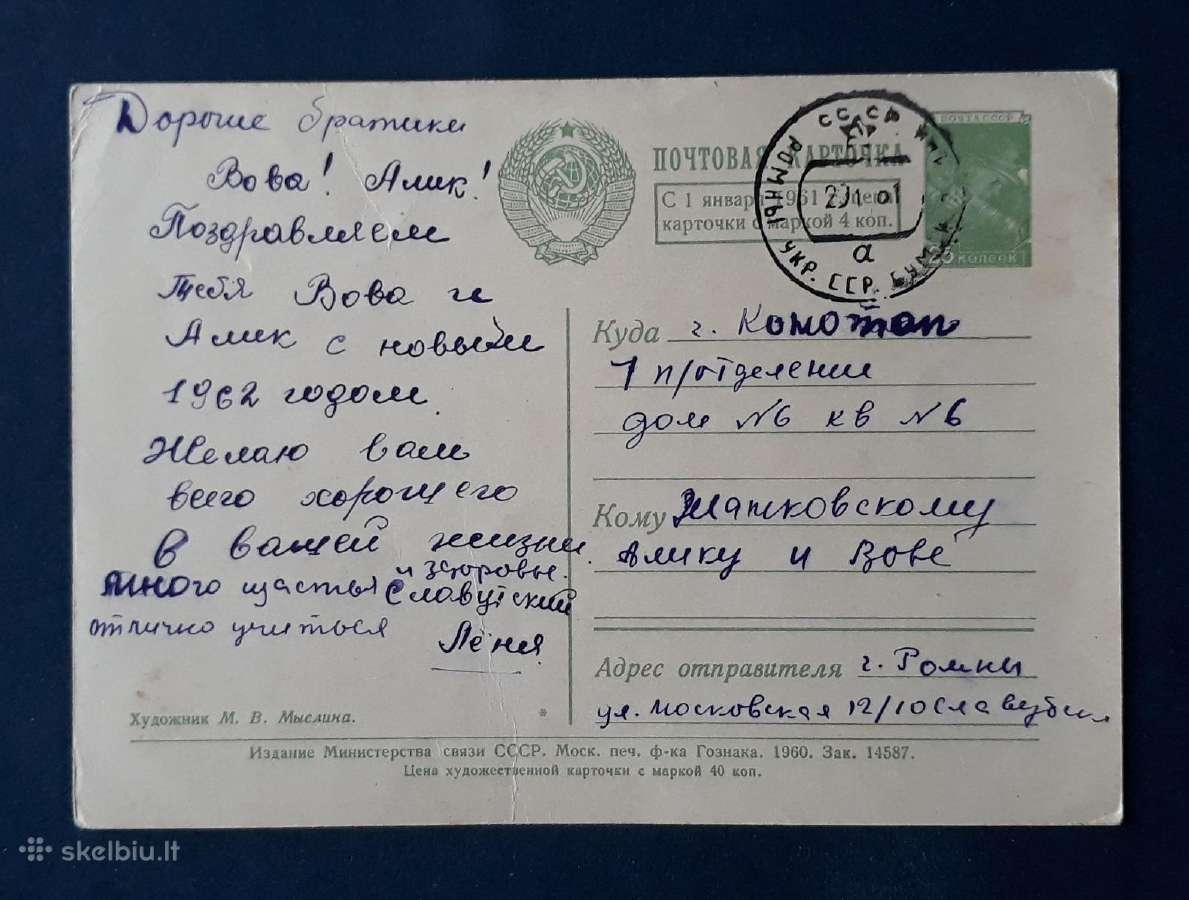 Дорогие братики
Вова! Алик!
Поздравляем
Тебя Вова и
Алик с новым
1962 годом.
Желаю вам
всего хорошего
в вашей жизни
и здоровье.
много щастья
отлично учиться
Славутский
Лёня.
ПОЧТОВАЯ КАРТОЧКА
С 1 января 1961 г. цена
карточки с маркой 4 коп.
ПОЧТА СССР
25 КОПЕЕК
РОМНЫ
УКР. ССР.
а
Куда г. Конотоп
1 п/отделении
дом №6 кв №6
Кому Шапковскому
Алику и Вове
Адрес отправителя г. Ромны
ул. Московская 12/10
Художник М. В. Мыслина.
*
Издание Министерства связи СССР. Моск. печ. ф-ка Гознака. 1960. Зак. 14587.
Цена художественной карточки с маркой 40 коп.
skelbiu.lt